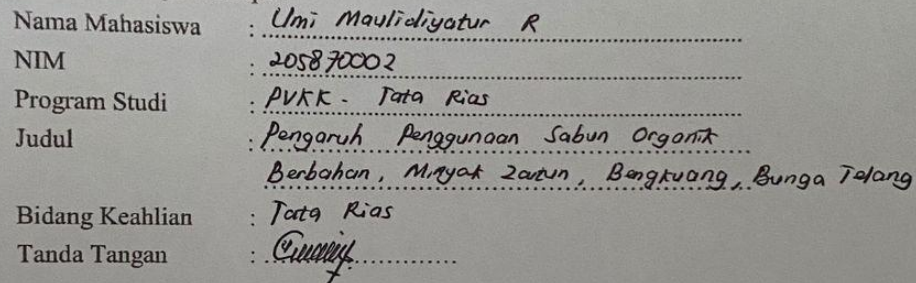 Nama Mahasiswa : Umi Maulidiyatur R
NIM : 205870002
Program Studi : PVKK - Tata Rias
Judul : Pengaruh Penggunaan Sabun Organik
Berbahan, Minyak Zaitun, Bengkuang, Bunga Telang
Bidang Keahlian : Tata Rias
Tanda Tangan :